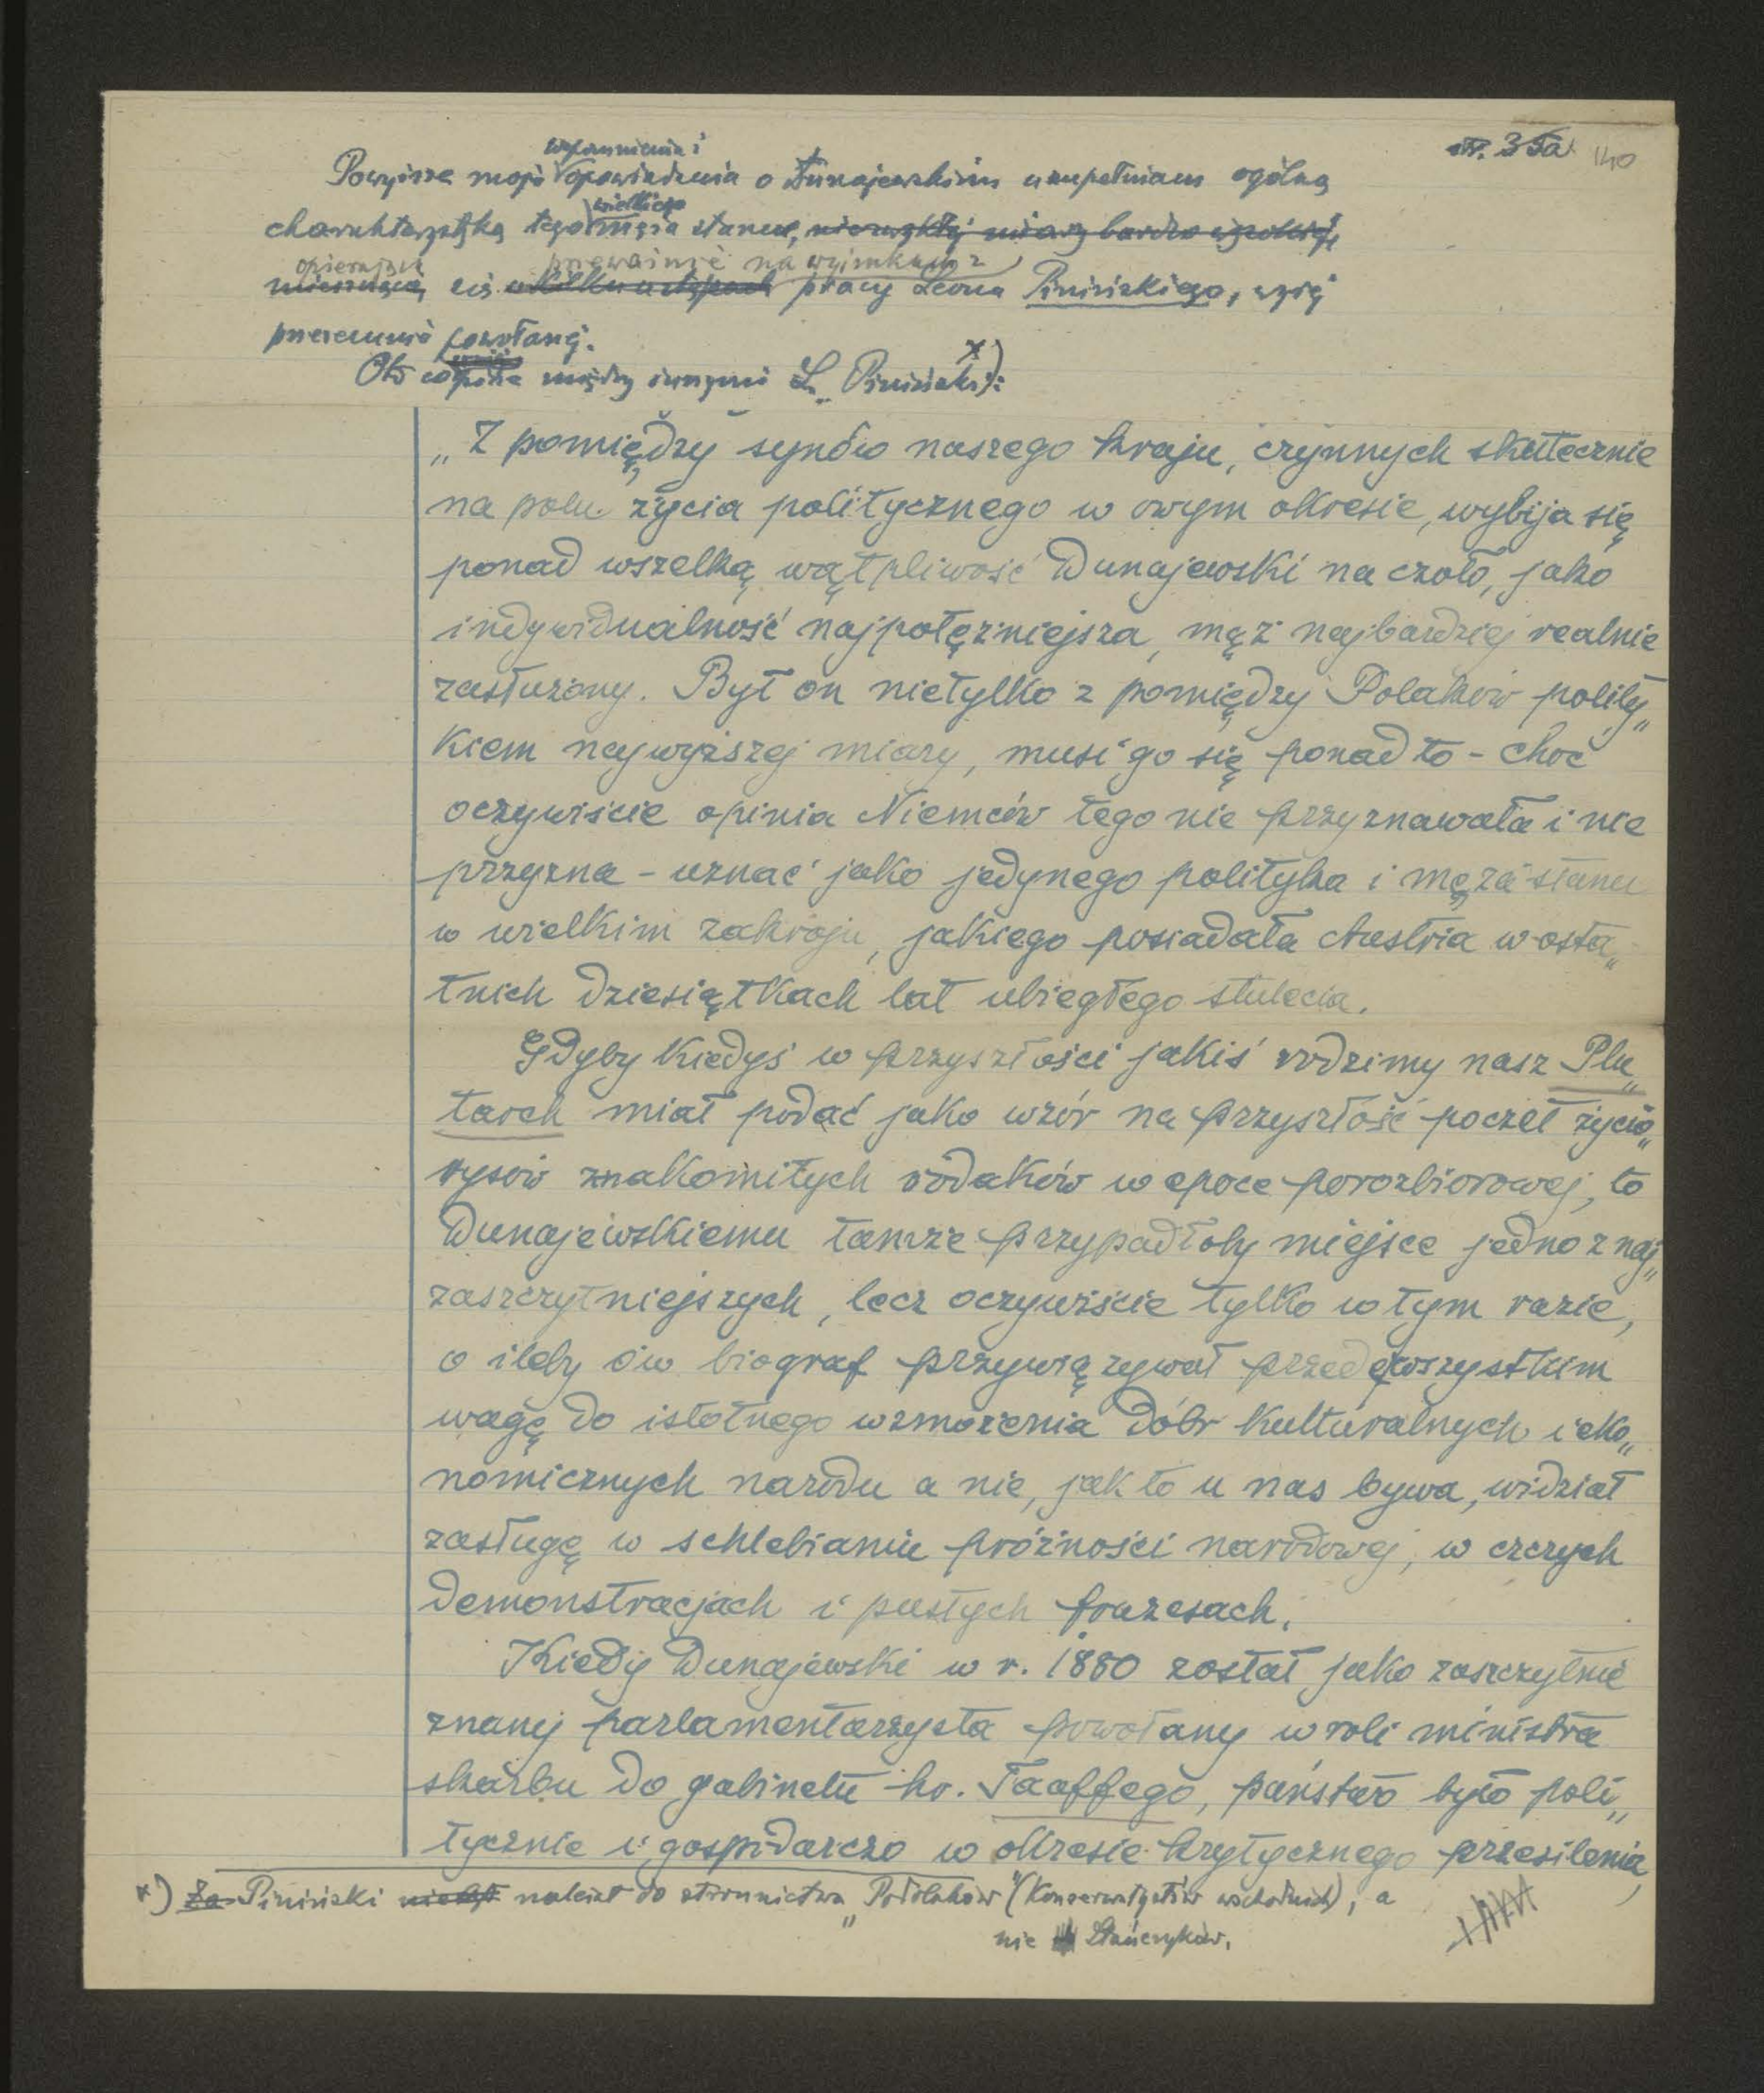 str. 35a 140
wspomnienia i
Powyższe moje opowiadania o Dunajewskim uzupełniam ogólną
wielkiego
charakterystyką tego męża stanu, niezwykłej miary bardzo wysokiej,
opierając przeważnie na wyjątkach z
się w kilku ustępach pracy Leona Pinińskiego, wyżej
powołanej.
Oto co pisze między innymi L. Piniński x):
„Z pomiędzy synów naszego kraju, czynnych skutecznie
na polu życia politycznego w owym okresie, wybija się
ponad wszelką wątpliwość Dunajewski na czoło, jako
indywidualność najpotężniejsza, mąż najbardziej realnie
zasłużony. Był on nietylko z pomiędzy Polaków polity„
kiem najwyższej miary, musi go się ponadto - choć
oczywiście opinia Niemców tego nie przyznawała i nie
przyzna - uznać jako jedynego polityka i męża stanu
w wielkim zakroju, jakiego posiadała Austria w osta„
tnich dziesiątkach lat ubiegłego stulecia.
Gdyby kiedyś w przyszłości jakiś rodzimy nasz Plu„
tarch miał podać jako wzór na przyszłość poczet życio„
rysów znakomitych rodaków w epoce porozbiorowej, to
Dunajewskiemu tamże przypadłoby miejsce jedno z naj„
zaszczytniejszych, lecz oczywiście tylko w tym razie,
o ileby ów biograf przywiązywał przedewszystkim
wagę do istotnego wzmożenia dóbr kulturalnych i eko„
nomicznych narodu a nie, jak to u nas bywa, widział
zasługę w schlebianiu próżności narodowej, w czczych
demonstracjach i pustych frazesach.
Kiedy Dunajewski w r. 1880 został jako zaszczytnie
znany parlamentarzysta powołany w roli ministra
skarbu do gabinetu hr. Taaffego, państwo było poli„
tycznie i gospodarczo w okresie krytycznego przesilenia,
x) Za Piniński należał do stronnictwa „Podolaków” (Konserwatystów wschodnich), a
nie Stańczyków.